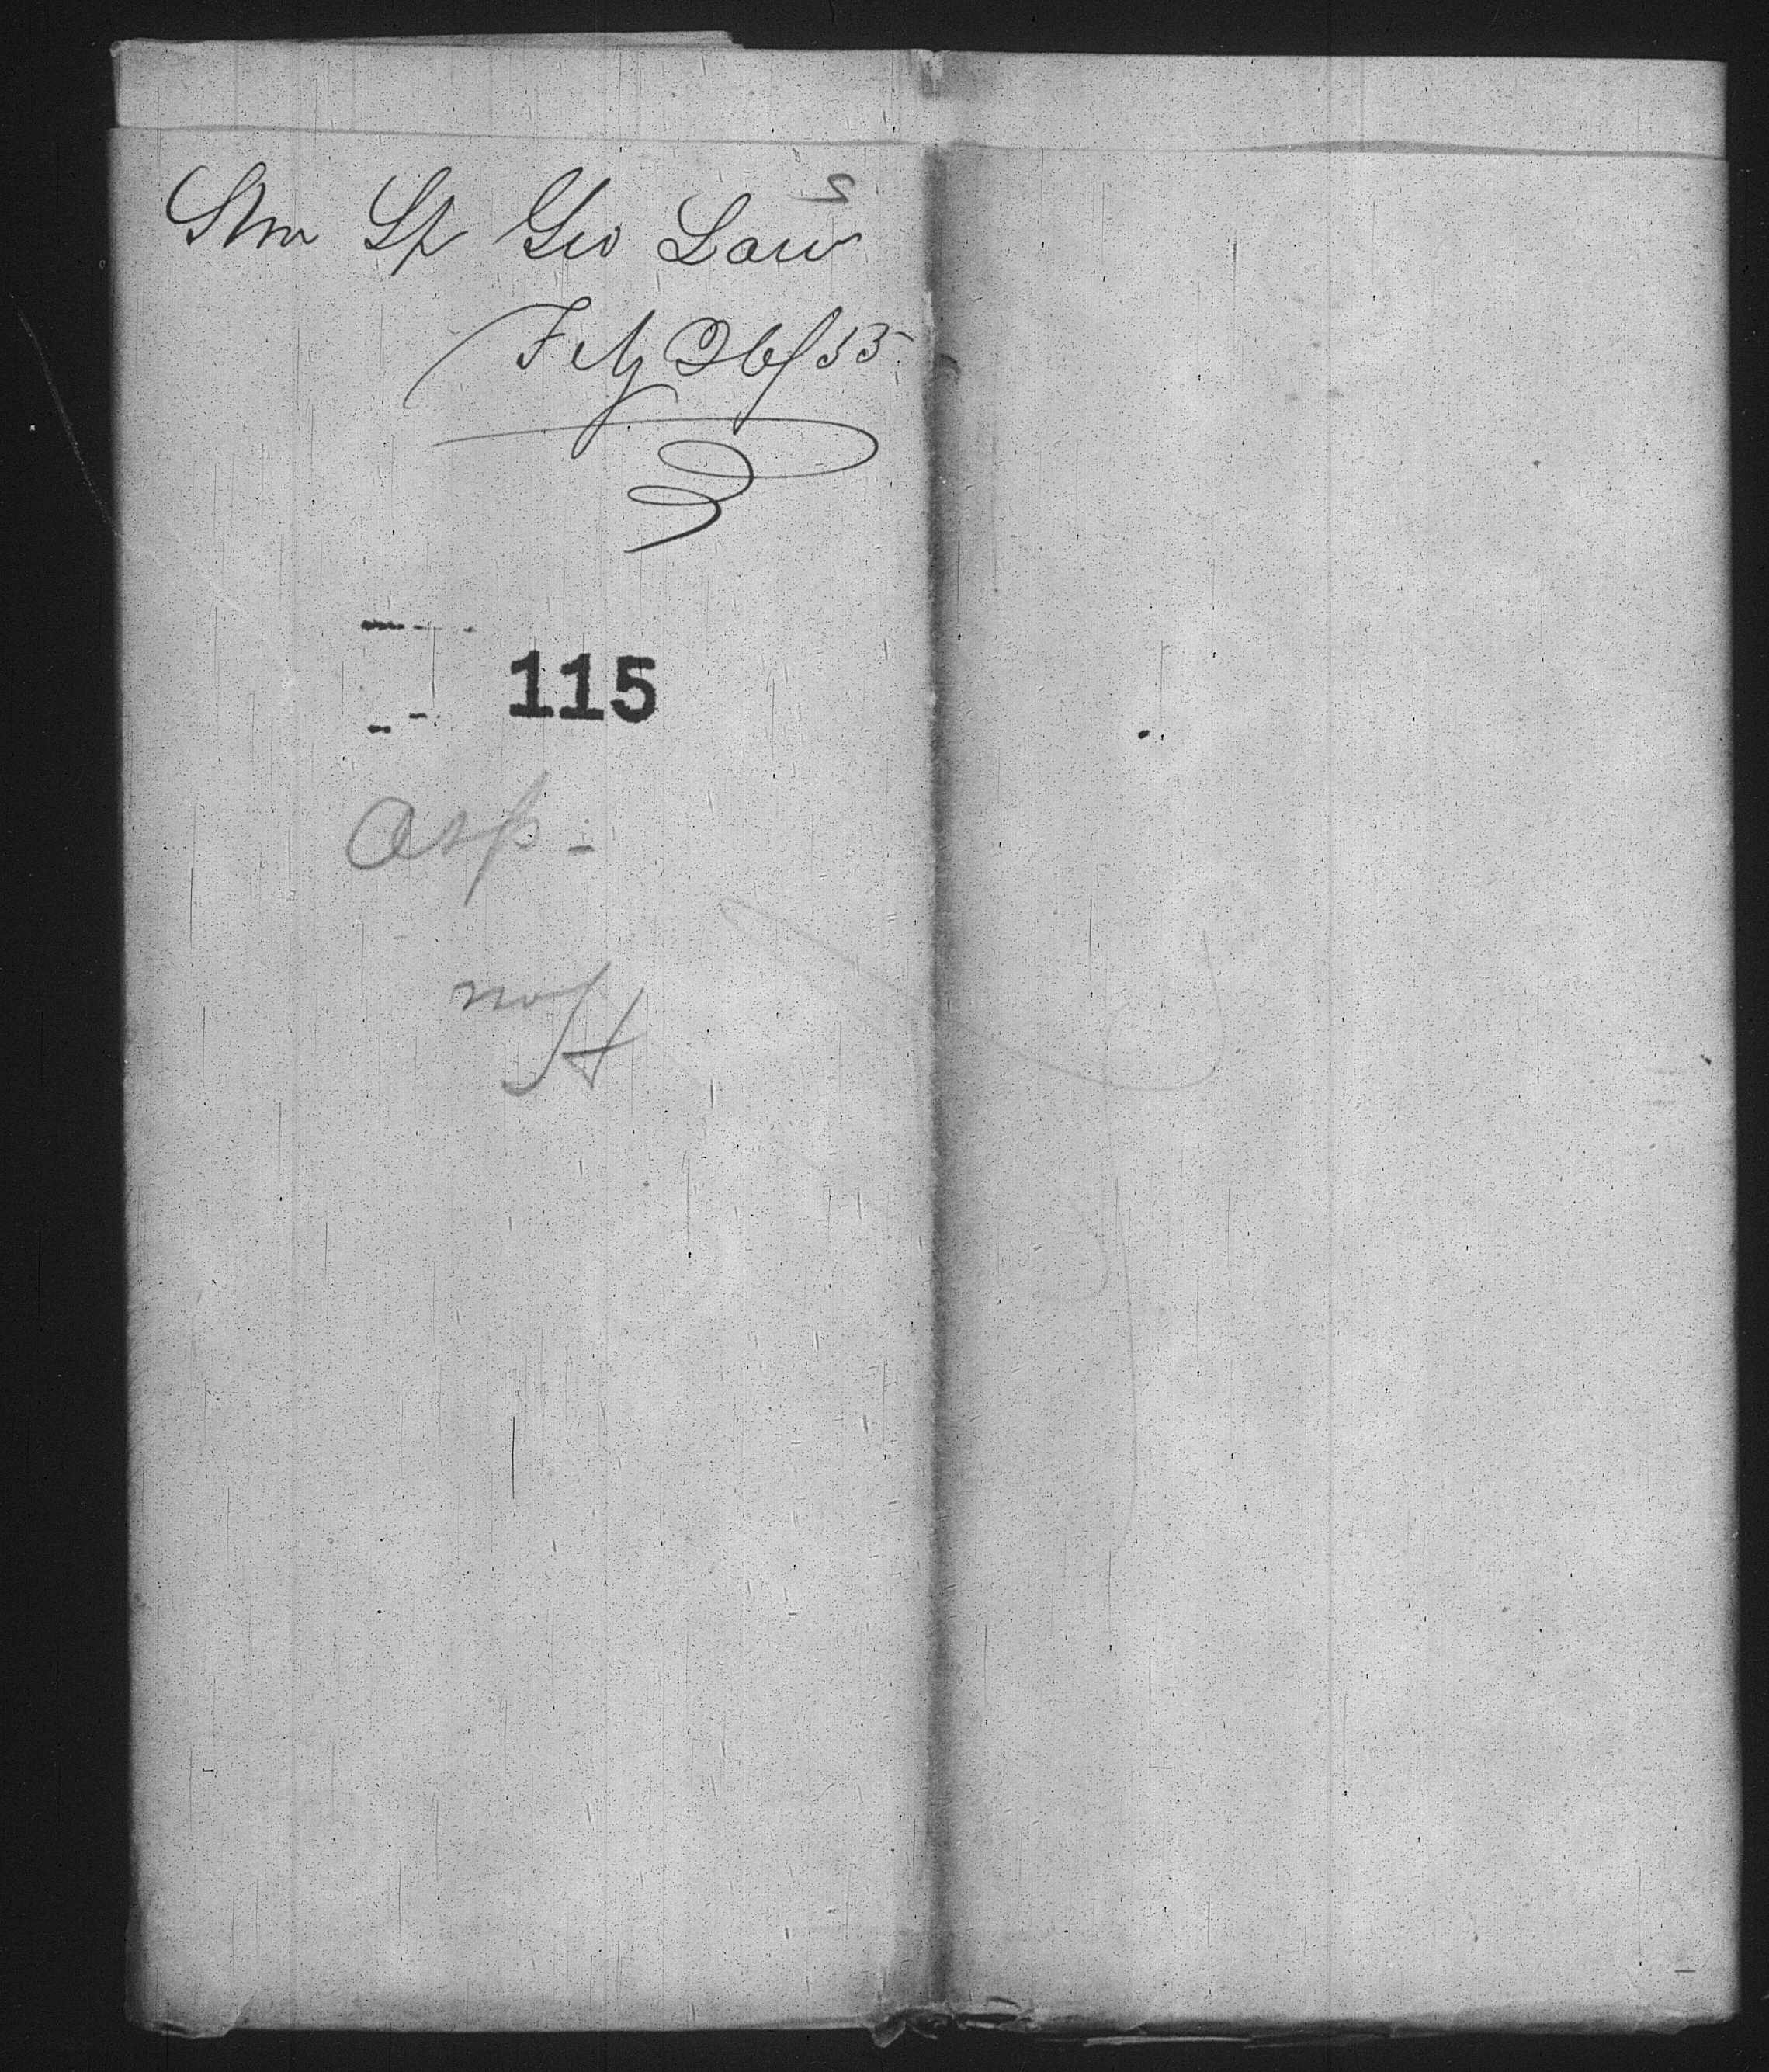 S
Stm Sp Geo Law
Feby 26/55
115
Asp -